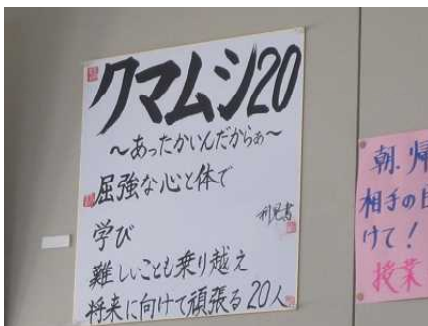 クマムシ20
～あったかいんだからぁ～
屈強な心と体で
学び
難しいことも乗り越え
将来に向けて頑張る20人
朝、帰
相手の目
けて！
授業